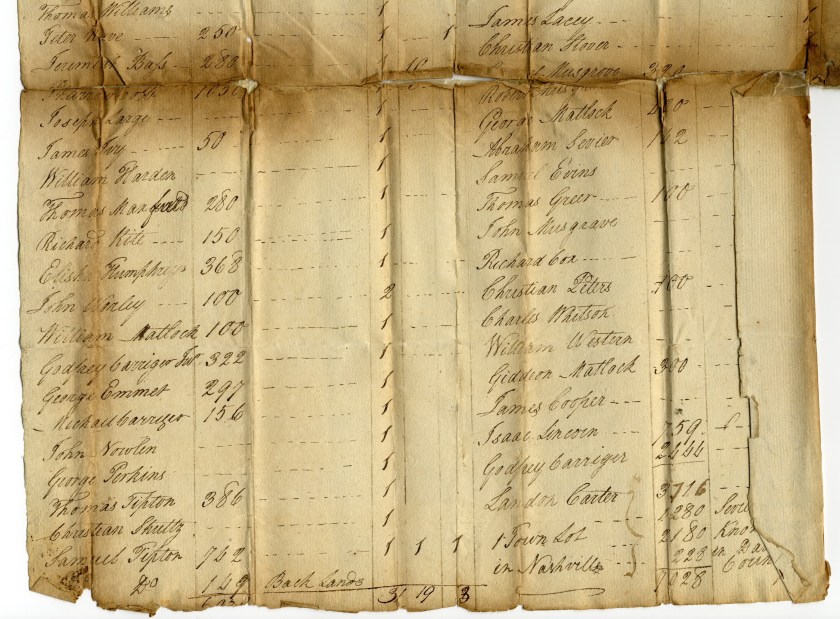 Thomas Williams 1
Peter 250 1 1
Jeremiah Bass 280 1 10
1050
Joseph Large 1
James Ivy 50 1
William Harden 1
Thomas Maxfield 280 1
Richard Kite 150 1
Elisha Humphreys 368 1
John Worley 100 2
William Matlock 100 1
Godfrey Carriger 322 1
George Emmet 297 1
Michael Carriger 156 1
John Nowlen 1
George Perkins 1
Thomas Tipton 386 1
Christian Shultz 1
Samuel Tipton 742 1 1 1
Do 149 Back Lands 31 19 3
James Lacey
Christian Stover
Musgrove 320
George Matlock 400
Abraham Sevier 142
Samuel Evins
Thomas Greer 100
John Musgrave
Richard Cox
Christian Peters 400
Charles Whitson
William Western
Giddeon Matlock 300
James Cooper
Isaac Lincoln
Godfrey Carriger 2444
Landon Carter 3716
1280
1 Town Lot 2180
in Nashville 228 in
7028